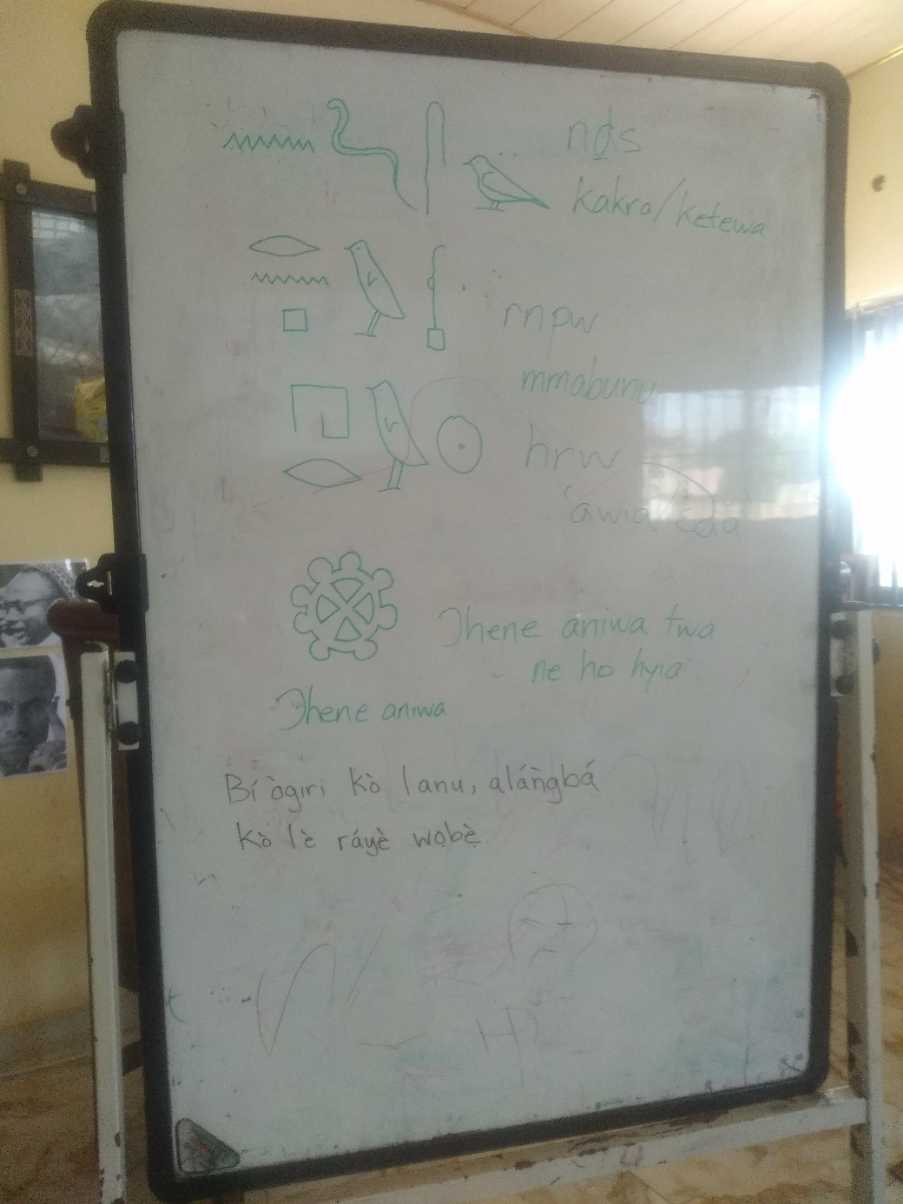 𓈖𓆓𓋴𓅪 nḏs
kakra/ketewa
𓂋𓈖𓊪𓅱𓆳 rnpw
mmabunu
𓉔𓂋𓅱𓇳 hrw
awia
Ɔhene aniwa twa
ne ho hyia
Ɔhene aniwa
Bí ògiri kò lanu, aláǹgbá
kò lè ráyè wọbẹ̀